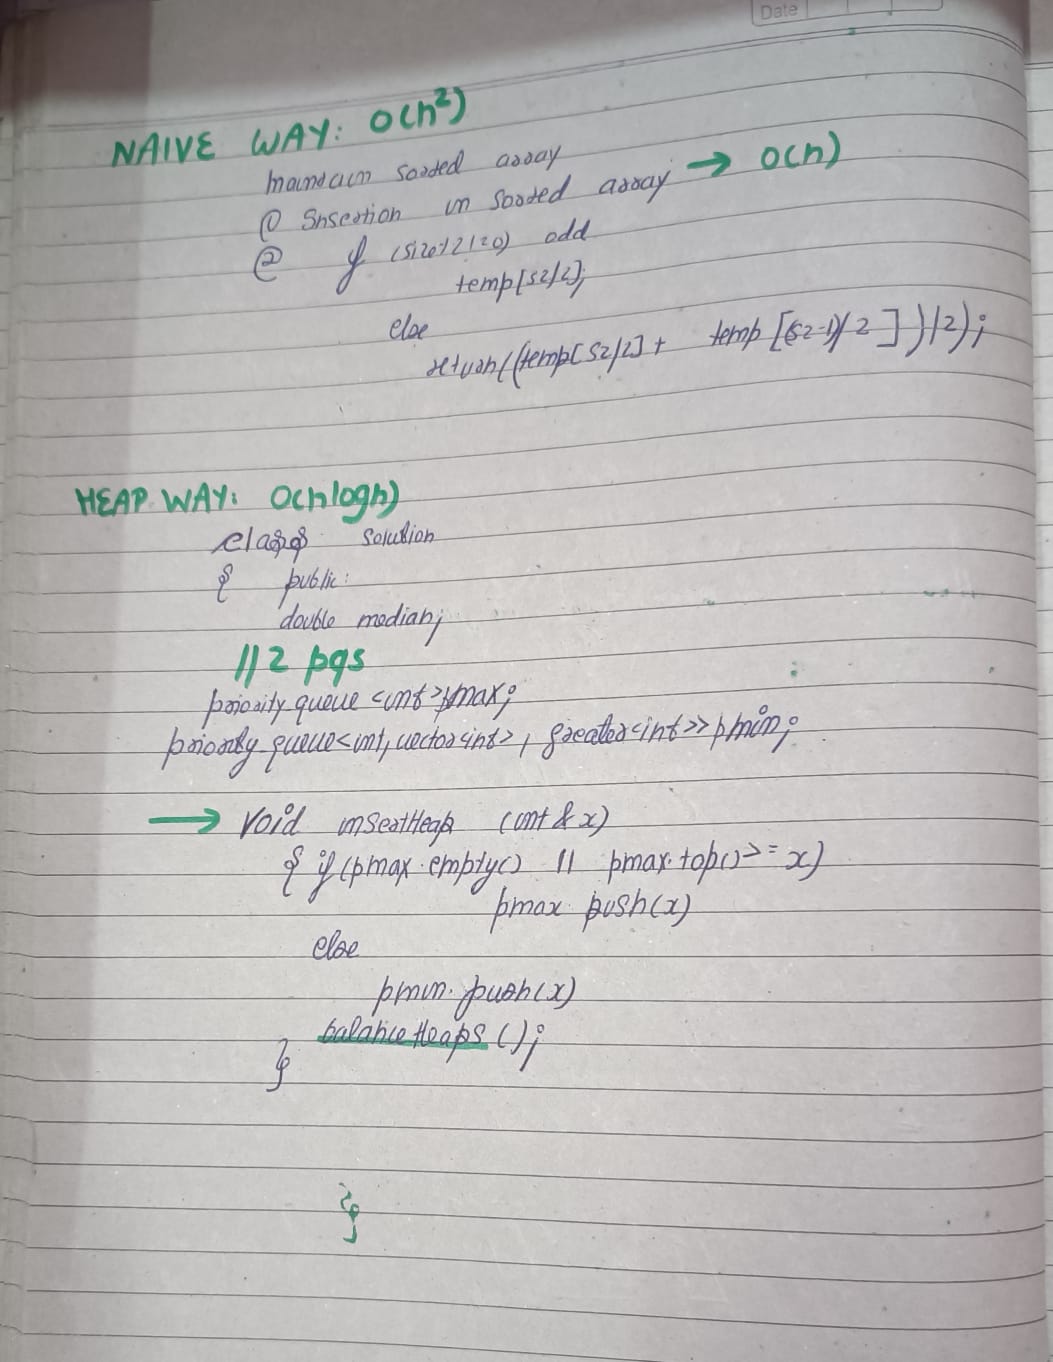 Date
NAIVE WAY: O(n²)
maintain sorted array
① Insertion in sorted array → O(n)
② if (size%2!=0) odd
temp[sz/2];
else
return((temp[sz/2]+ temp[(sz-1)/2])/2);
HEAP WAY: O(nlogn)
class Solution
{ public:
double median;
//2 pqs
priority queue <int>pmax;
priority queue<int,vector<int>, greater<int>> pmin;
→ void insertHeap (int & x)
{ if (pmax.empty() || pmax.top()>=x)
pmax.push(x)
else
pmin.push(x)
balanceHeaps ();
}
}